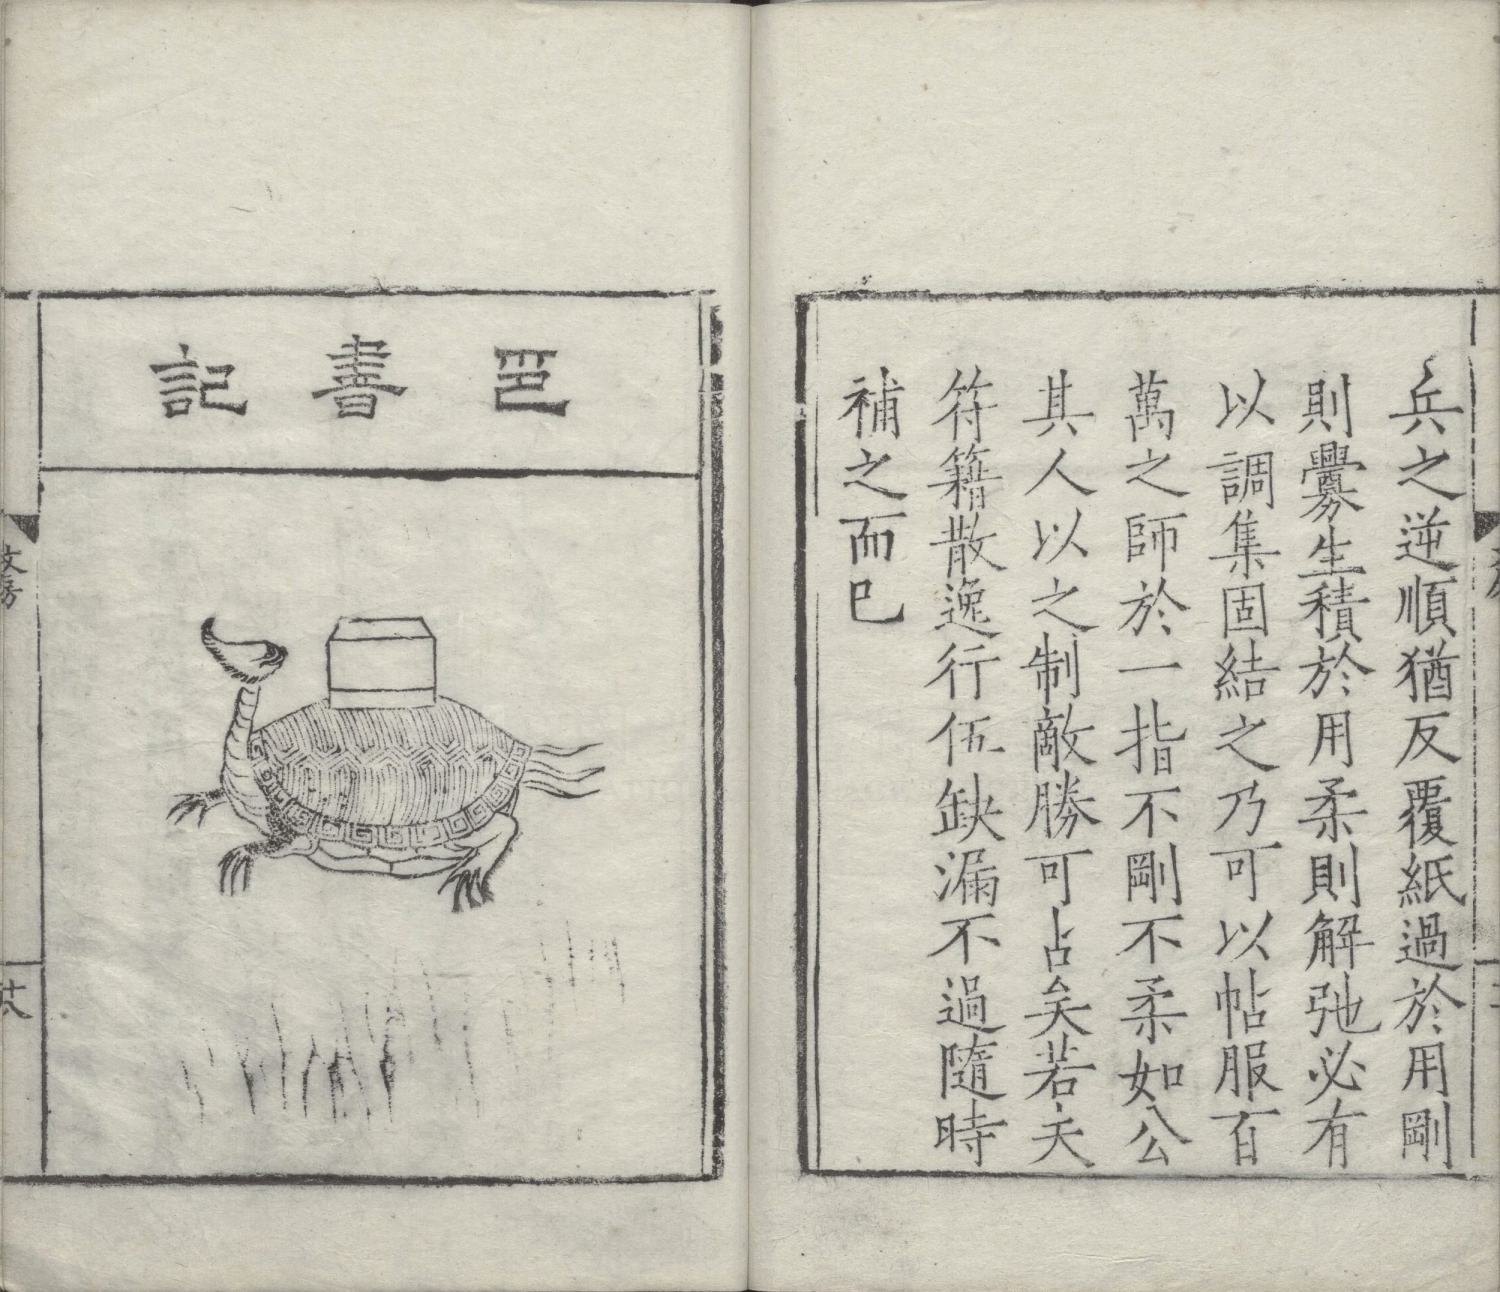 兵之逆順猶反覆紙過於用剛
則釁生積於用柔則解弛必有
以調集固結之乃可以帖服百
萬之師於一指不剛不柔如公
其人以之制敵勝可占矣若夫
符籍散逸行伍缺漏不過隨時
補之而已
印書記
文房
廿八